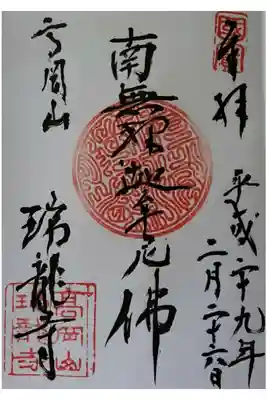 奉拝
平成二十九年
二月二十六日
南無釈迦牟尼佛
高岡山
瑞龍寺
高岡山
瑞龍寺